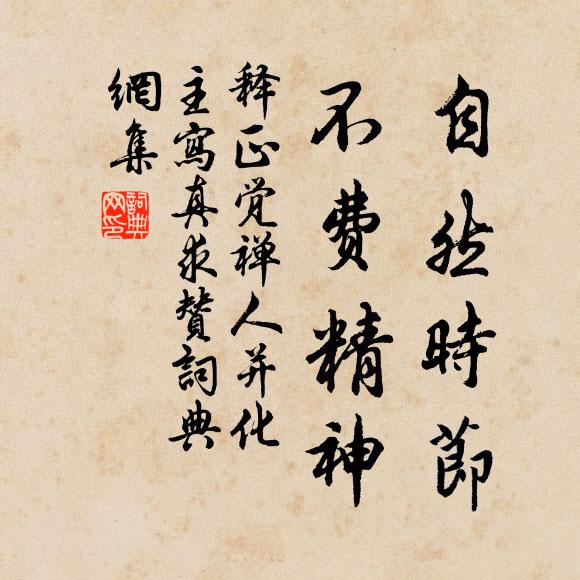 自然時節
不费精神
释正觉禅人并化
主寫真求贊詞典
網集
詞典网印